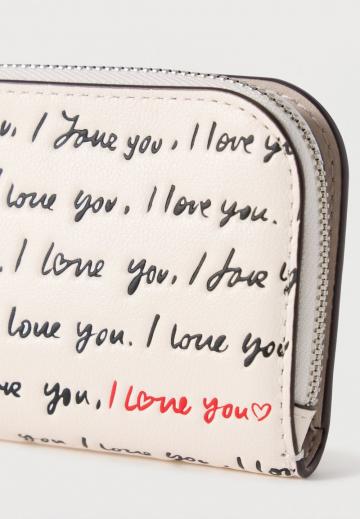 u, I Love you, I love y
I love you, I love you. I
. I love you, I love y
love you. I love you
ve you, I love you♡
I love you. I love you, I lov